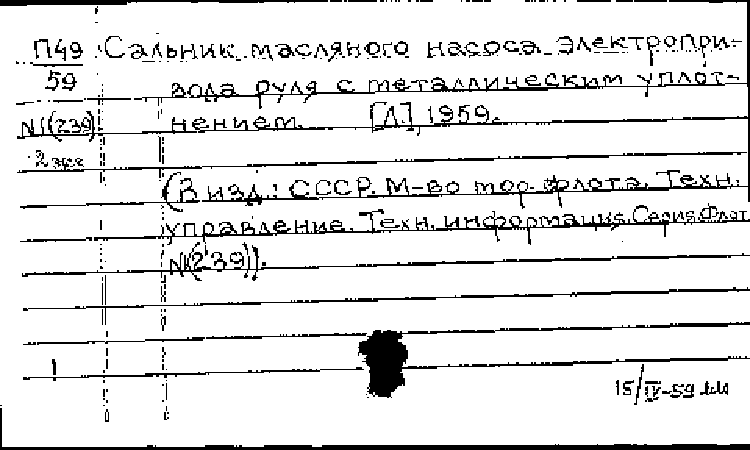 П49 Сальник масляного насоса электропри-
59 вода руля с металлическим уплот-
N1(239) нением. [Л.], 1959.
2 экз
(В изд.: СССР. М-во мор. флота. Техн.
управление. Техн. информация. Серия: Флот
N1(239)).
1
15/IV-59